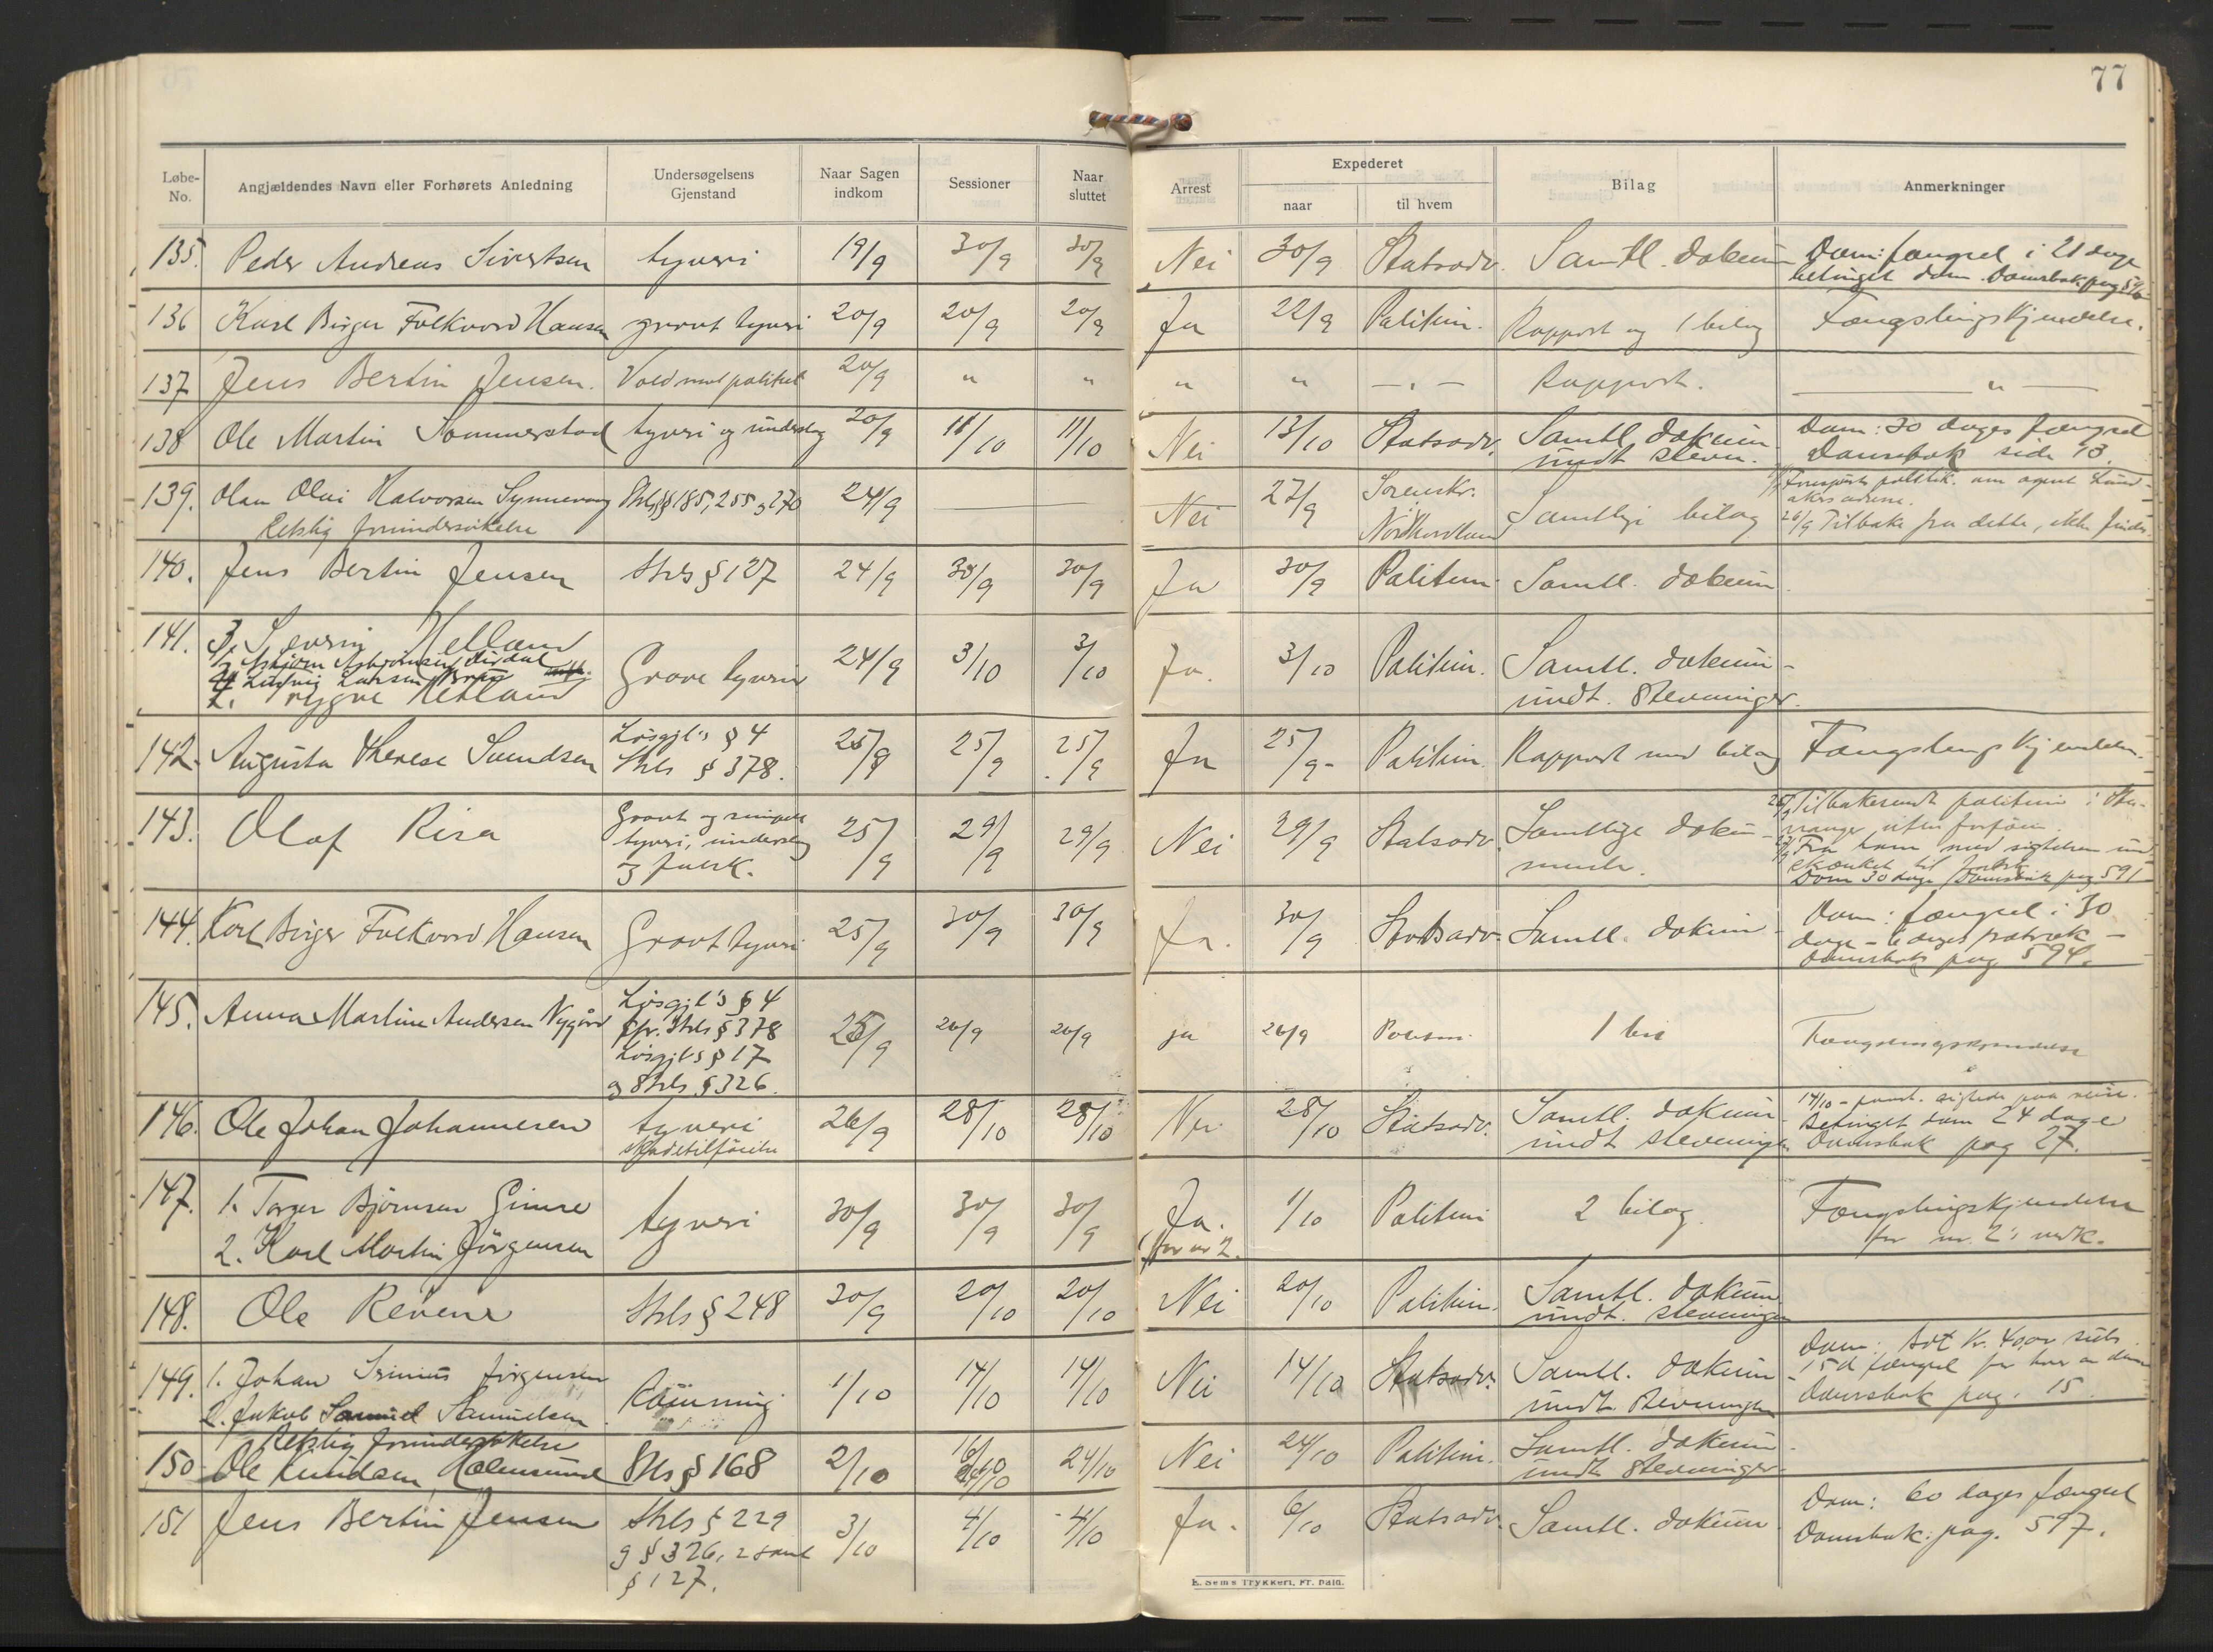 77
Løbe-No. Angjældendes Navn eller Forhørets Anledning Undersøgelsens Gjenstand Naar Sagen indkom Sessioner Naar sluttet Arrest Expederet naar til hvem Bilag Anmerkninger
135. Peder Andreas Sivertsen tyveri 19/9 30/9 30/9 Nei 30/9 Statsadv. Samtl. dokum Dom: fængsel i 21 dage
betinget dom. Domsbok pag
136 Karl Birger Folkvord Hansen grovt tyveri 20/9 20/9 20/9 Ja 22/9 Politim. Rapport og 1 bilag Fængslingskjendelse.
137 Jens Bertin Jensen. Vold mot politiet 20/9 " " " " — " — Rapport. — " —
138 Ole Martin Sommerstad tyveri og underslag 20/9 11/10 11/10 Nei 13/10 Statsadv. Samtl. dokum Dom: 30 dages fængsel
undt. stevn. Domsbok side 13.
139. Olav Olai Halvorsen Synnevaag Strls §§ 185, 255 og 270 24/9 — Nei 27/9 Sorenskr. i Nordhordland Samtlige bilag
Retslig forundersøkelse 26/9 Tilbake fra dette, ikke
140. Jens Bertin Jensen Strls § 127 24/9 30/9 30/9 Ja 30/9 Politim. Samtl. dokum
141. 3. Severin Helland Grove tyverier 24/9 3/10 3/10 Ja. 3/10 Politim. Samtl. dokum-
Asbjørn Asbjørnsen Dirdal
Ludvig Larsen undt. Stevninger.
2. Trygve Helland
142. Augusta Therese Svendsen Løsgjl's § 4 25/9 25/9 25/9 Ja 25/9- Politim. Rapport med bilag Fængslingskjendelse.
Strls § 378.
143. Olaf Risa Grovt og simpelt tyveri, underslag og falsk. 25/9 29/9 29/9 Nei 29/9 Statsadv. Samtlige dokumenter. Tilbakesendt politim i Stavanger uten
Dom 30 dage Domsbok pag 591
144. Karl Birger Folkvord Hansen Grovt tyveri 25/9 30/9 30/9 Ja. 30/9 Statsadv. Samtl. dokum- Dom: fængsel i 30
dage - 6 dages fratræk -
Domsbok pag 594.
145. Anna Martine Andersen Nygård Løsgjl's § 4 25/9 26/9 26/9 ja 26/9 Politim. 1 bil Fængslingskjendelse
jfr. Strls § 378
Løsgjl's § 17
og Strls § 326.
146. Ole Johan Johannesen tyveri 26/9 28/10 28/10 Nei 28/10 Statsadv. Samtl. dokum 14/10 - sigtede paa reise.
skadetilføielse undt stevninger Betinget dom 24 dage
Domsbok pag 27.
147. 1. Torger Bjørnsen Gimse tyveri 30/9 30/9 30/9 Ja. 1/10 Politim 2 bilag. Fængslingskjendelse
2. Karl Martin Jørgensen for nr 2. for nr. 2's vedk.
148. Ole Revene Strls § 248 30/9 20/10 20/10 Nei 20/10 Politim. Samtl. dokum
undt. stevninger
149. 1. Johan Jørgensen Rømning 1/10 14/10 14/10 Nei 14/10 Statsadv. Samtl. dokum Dom: bøt kr. 40,00 subs
2. Jakob Samuelsen undt. Stevninger 15 d fængsel for hver av dem
Domsbok pag. 15.
Retslig forundersøkelse
150 Ole Knudsen Holmsund Strls § 168 2/10 24/10 Nei 24/10 Politim. Samtl. dokum
undt Stevninger
151 Jens Bertin Jensen Strls § 229 3/10 4/10 4/10 Ja. 6/10 Statsadv. Samtl. dokum Dom: 60 dages fængsel
og § 326, 2 samt Domsbok: pag. 597.
§ 127.
E. Sems Trykkeri, Fr. hald.